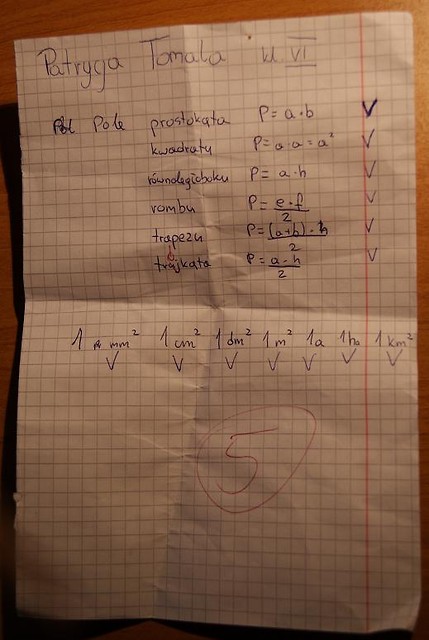 Patrycja Tomala kl VI
Pole prostokąta P = a · b
kwadratu P = a · a = a²
równoległoboku P = a · h
rombu P = e · f / 2
trapezu P = (a + b) · h / 2
trójkąta P = a · h / 2
1 mm² 1 cm² 1 dm² 1 m² 1 a 1 ha 1 km²
5